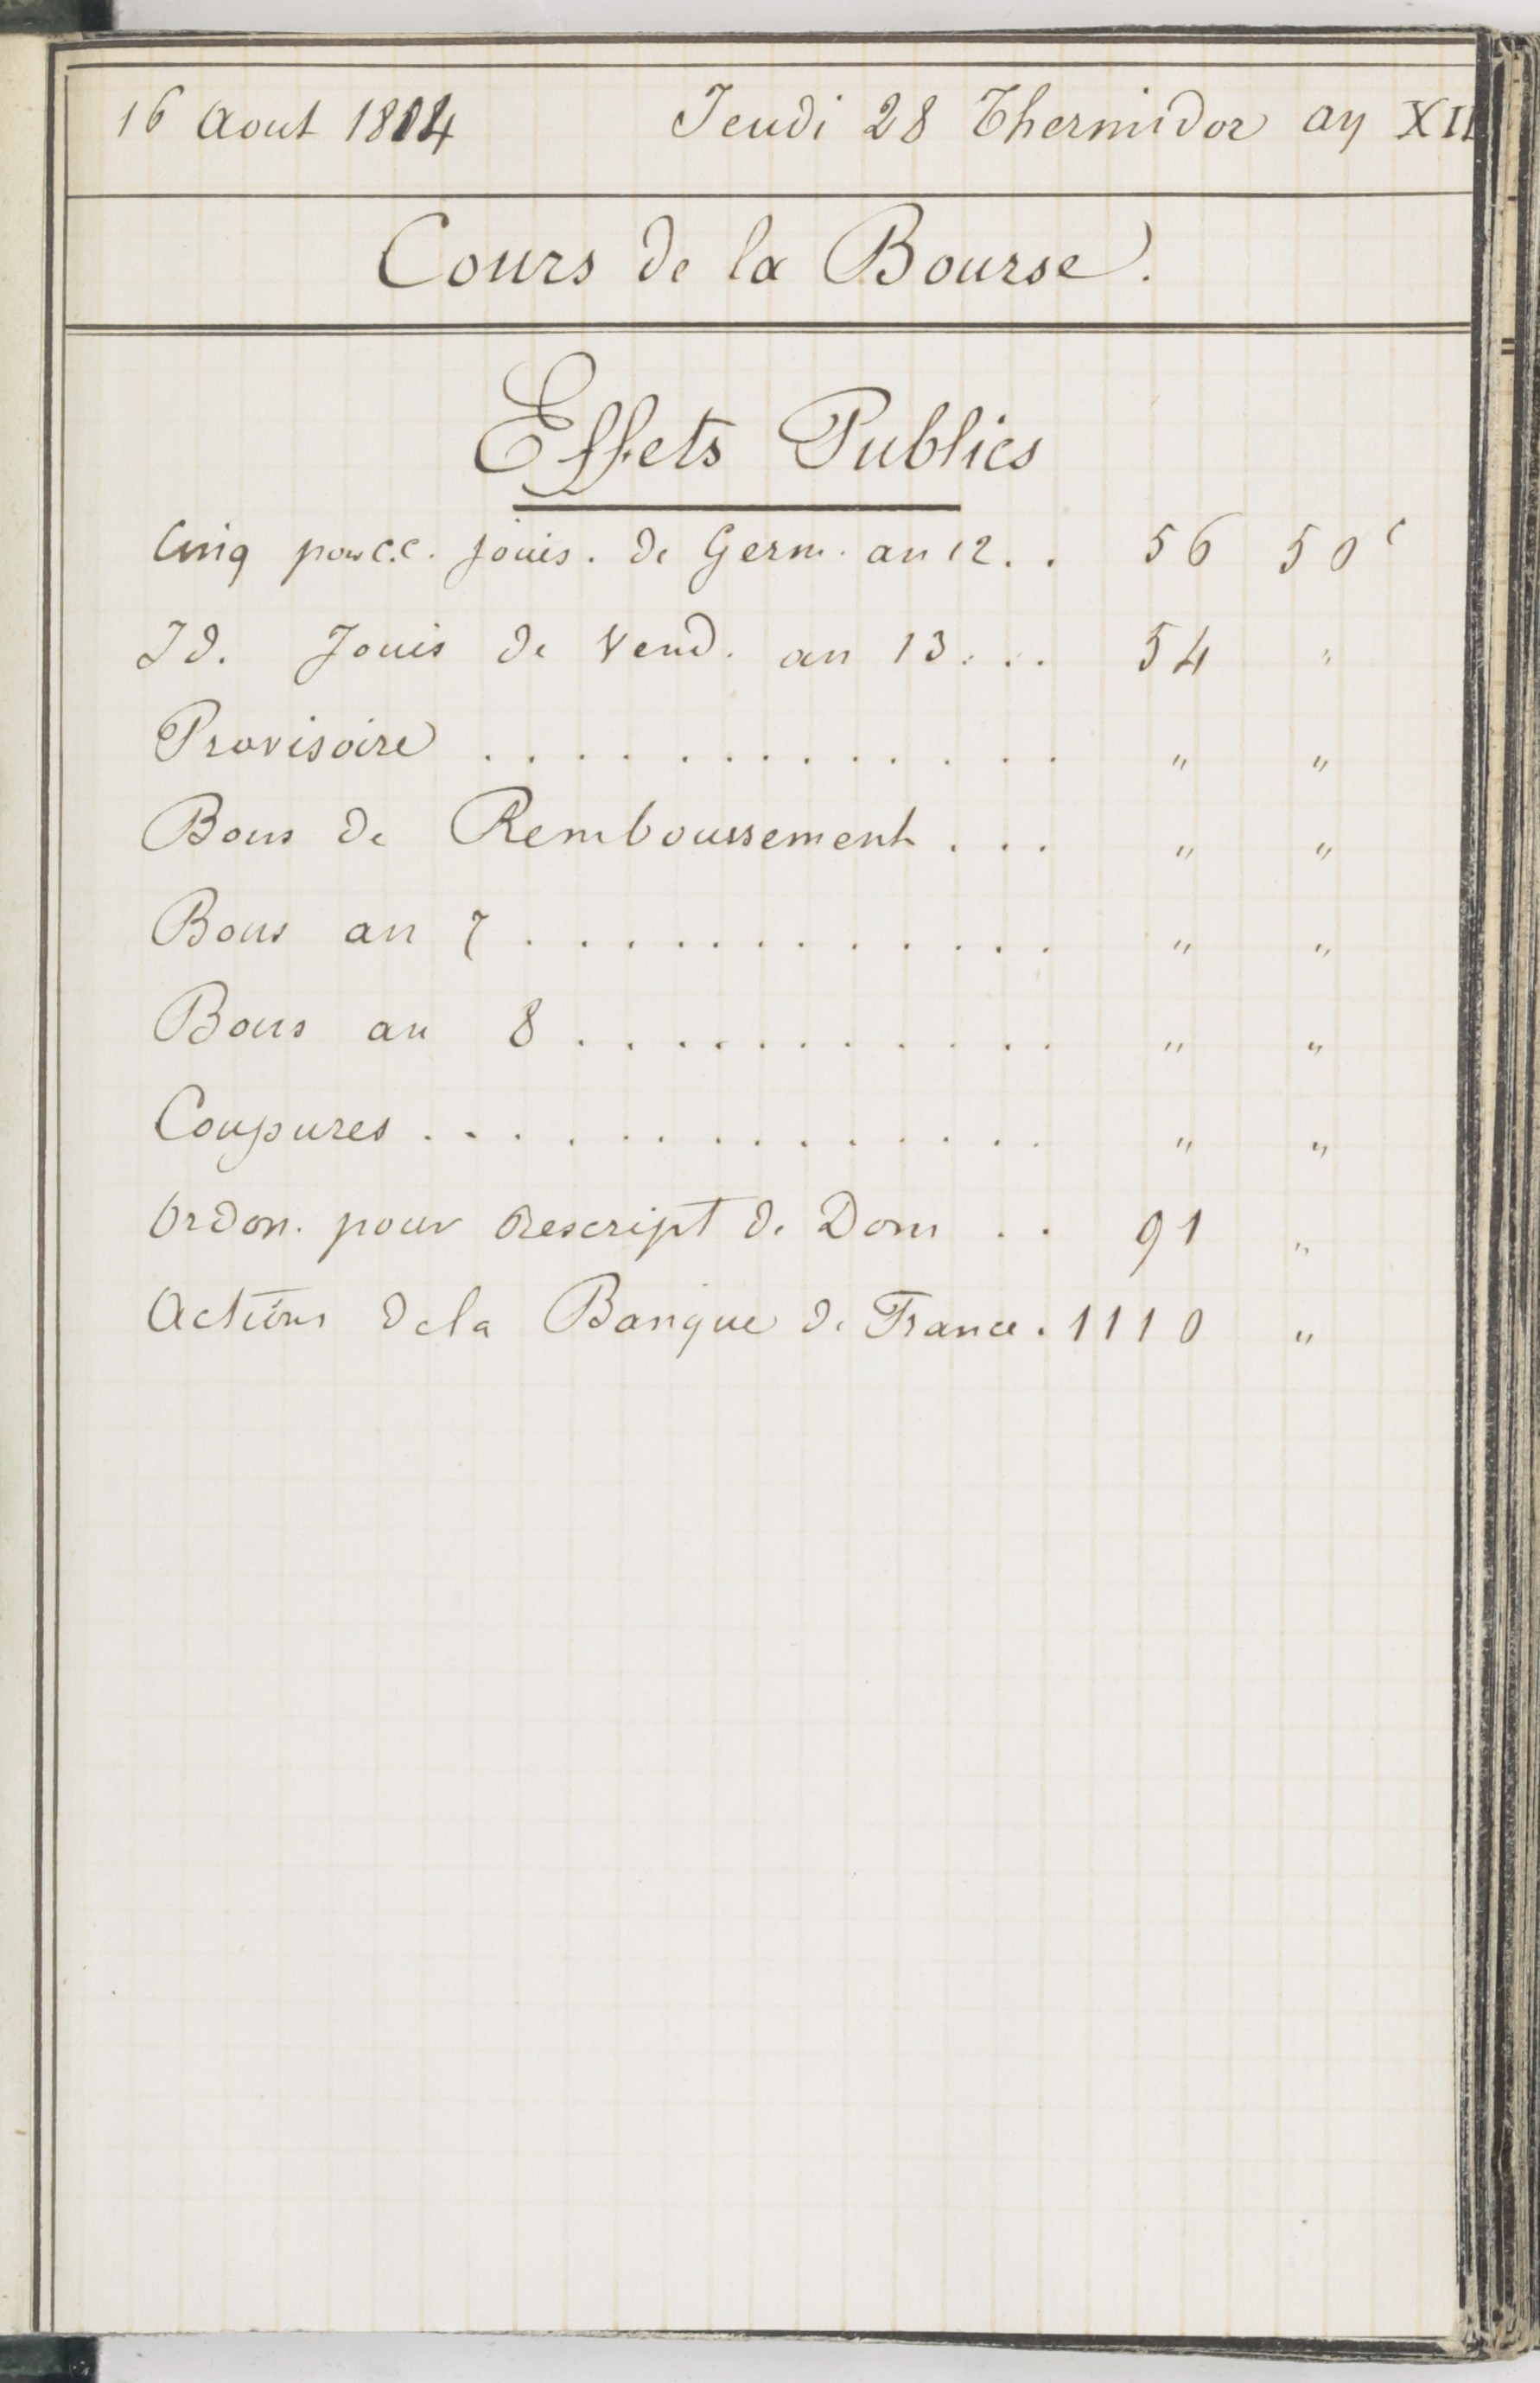 16 Aout 1804 Jeudi 28 Thermidor an XII
Cours de la Bourse.
Effets Publics
Cinq pour c.c. jouis. de Germ. an 12 . . 56 50 c
Id. Jouis de Vend. an 13 . . . 54 "
Provisoire . . . . . . . . . . . . " "
Bons de Remboursement . . . " "
Bons an 7 . . . . . . . . . . . " "
Bons an 8 . . . . . . . . . . " "
Coupures . . . . . . . . . . . . . " "
Ordon. pour Rescript de Dom . . 91 "
Actions de la Banque de France . 1110 "